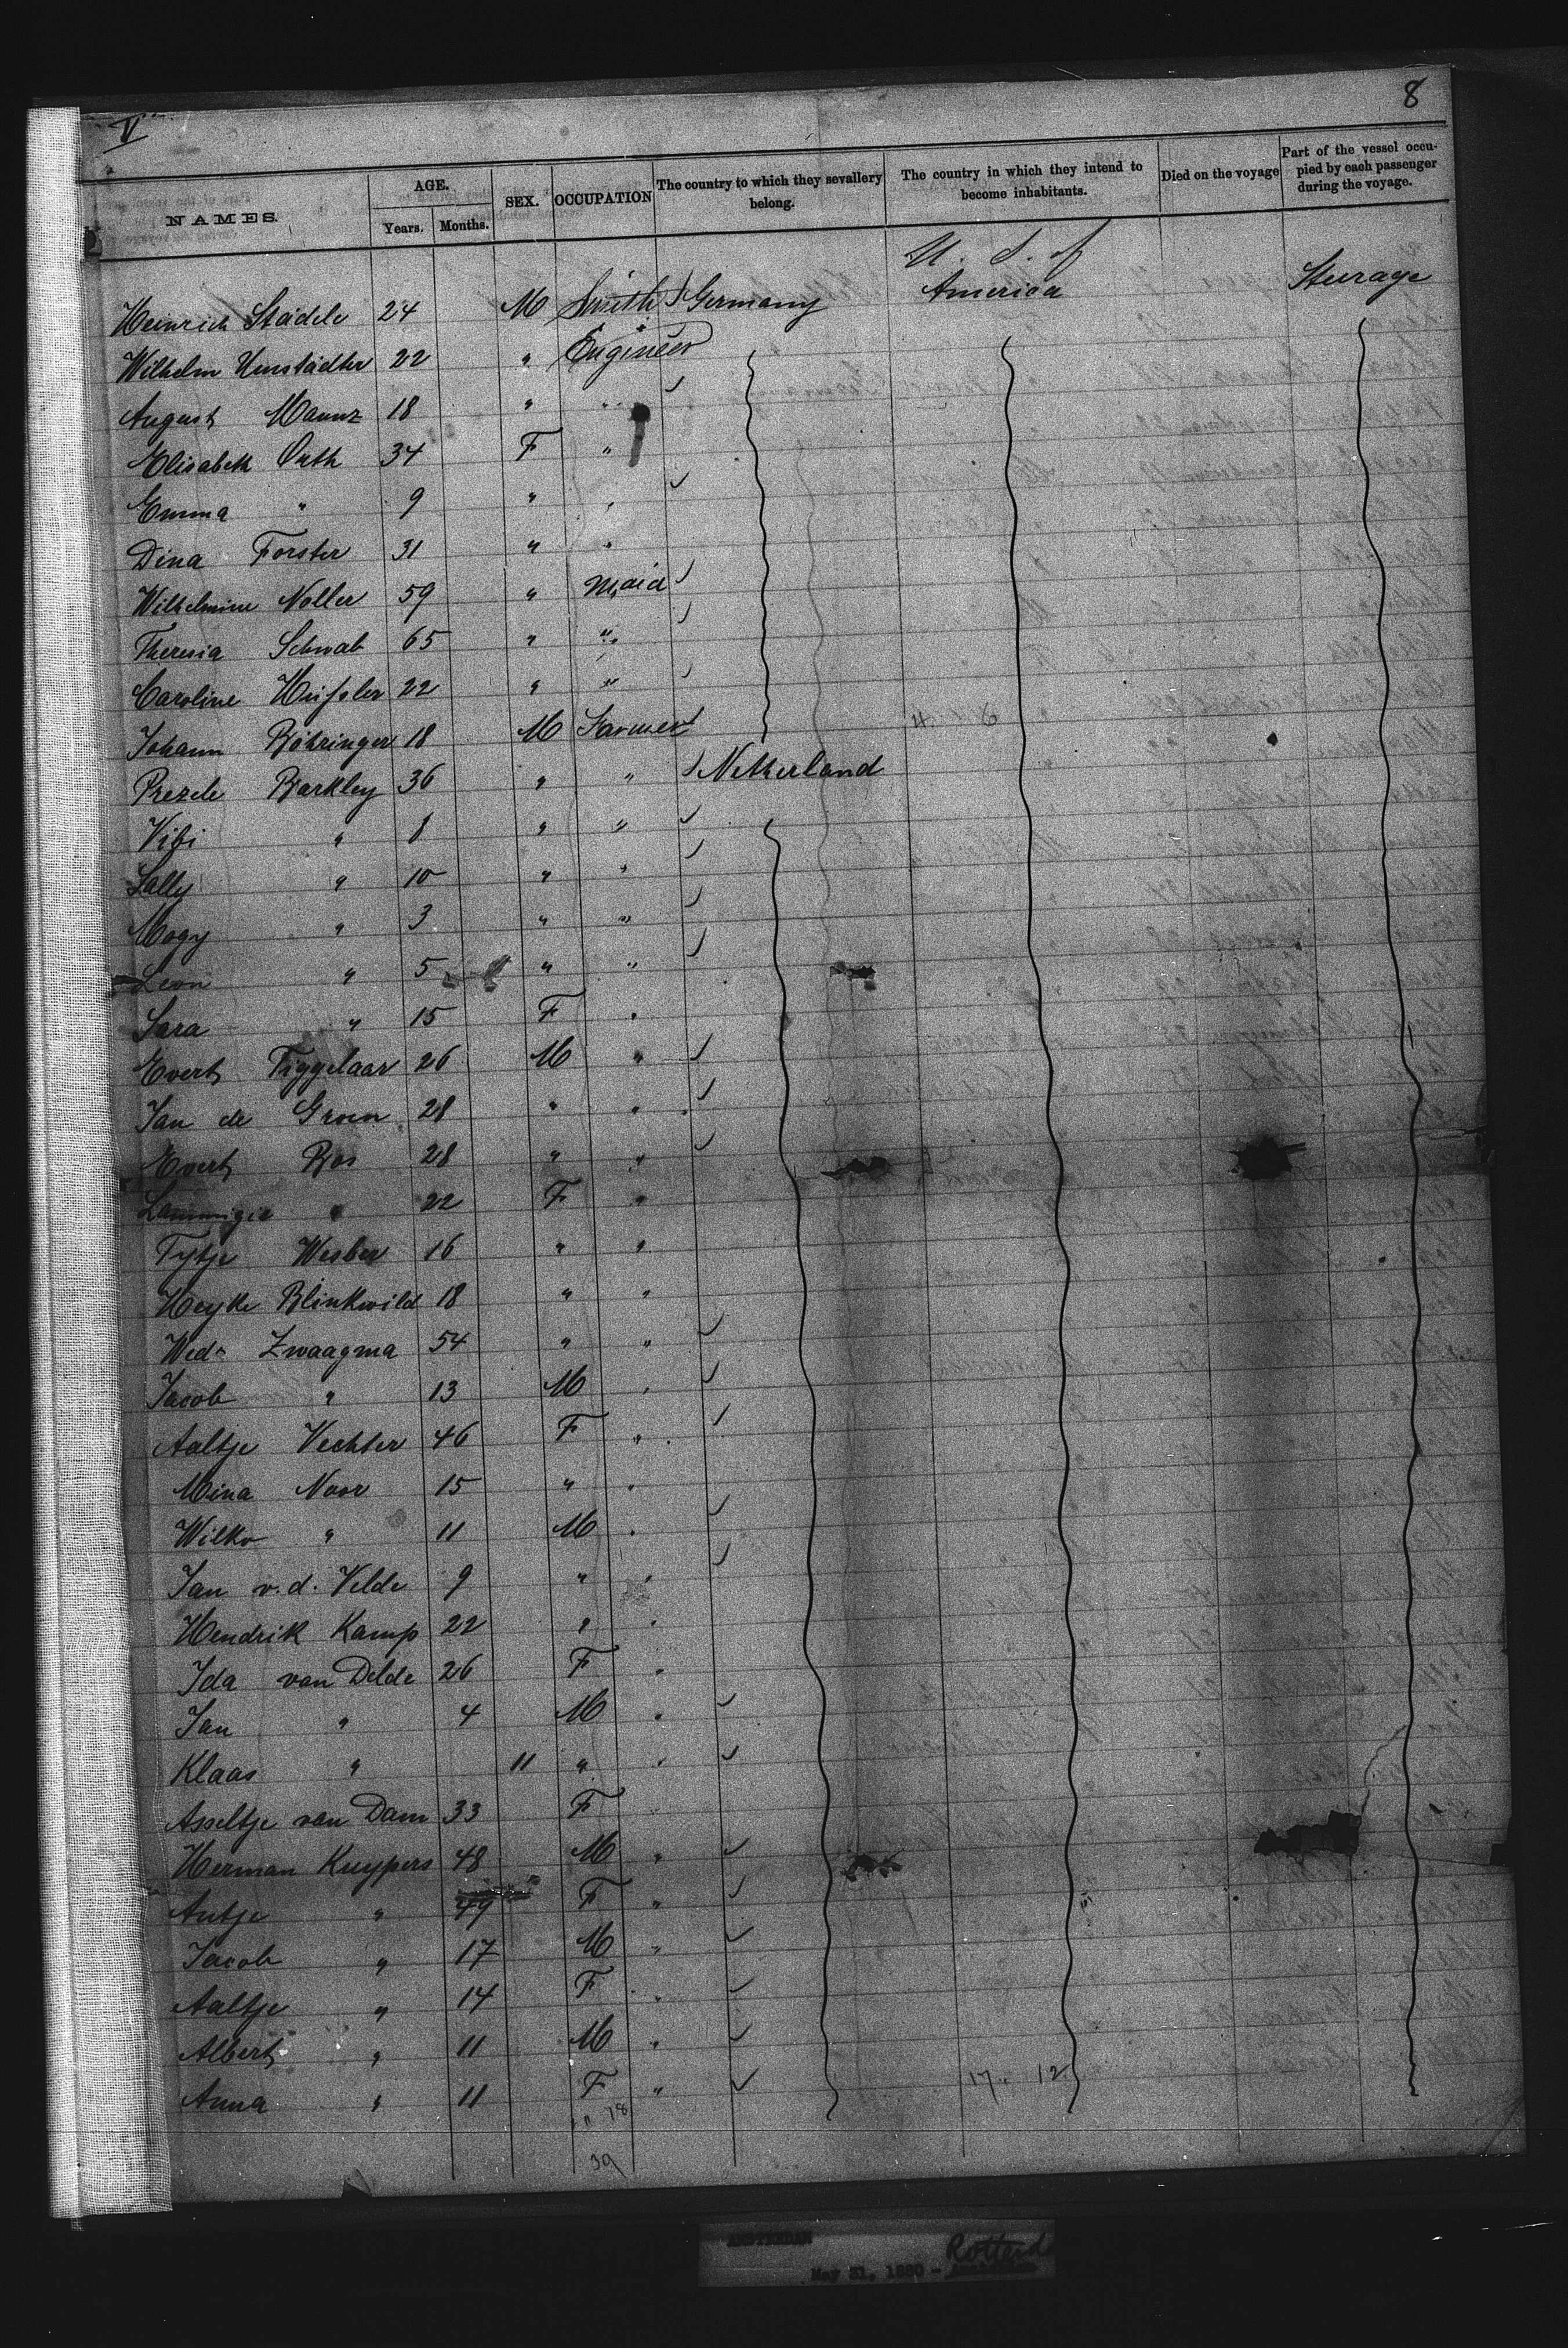 V 8
NAMES. AGE. Years. Months. SEX. OCCUPATION The country to which they sevallery belong. The country in which they intend to become inhabitants. Died on the voyage Part of the vessel occu- pied by each passenger during the voyage.
U. S. of
Heinrich Städele 24 M Smith Germany America Steerage
Wilhelm 22 " Engineer
August Maunz 18 " "
Elisabeth Orth 34 F "
Emma " 9 " "
Dina Forster 31 " "
Wilhelmine Noller 59 " Maid
Theresia Schwab 65 " "
Caroline 22 " "
Johann Böhringer 18 M Farmer 4 6
Barkley 36 " " Netherland
" 8 " "
Sally " 10 " "
Mogy " 3 " "
Leon " 5 " "
Sara " 15 F "
Evert Tiggelaar 26 M "
Jan de Groen 28 " "
Evert Bos 28 " "
Lammigje " 22 F "
Tytje 16 " "
Heyke Blinkwild 18 " "
Wed. Zwaagma 54 " "
Jacob " 13 M "
Aaltje Vechter 46 F "
Mina Noor 15 " "
Wilko " 11 M "
Jan v.d. Velde 9 " "
Hendrik Kamp 22 " "
Ida van Delde 26 F "
Jan " 4 M "
Klaas " 11 " "
Asseltje van Dam 33 F
Herman Kuypers 48 M "
Antje " 49 F "
Jacob " 17 M "
Aaltje " 14 F "
Albert " 11 M "
Anna " 11 F " 17. 12
18
39
AMSTERDAM
May 21, 1880 - Rotterd